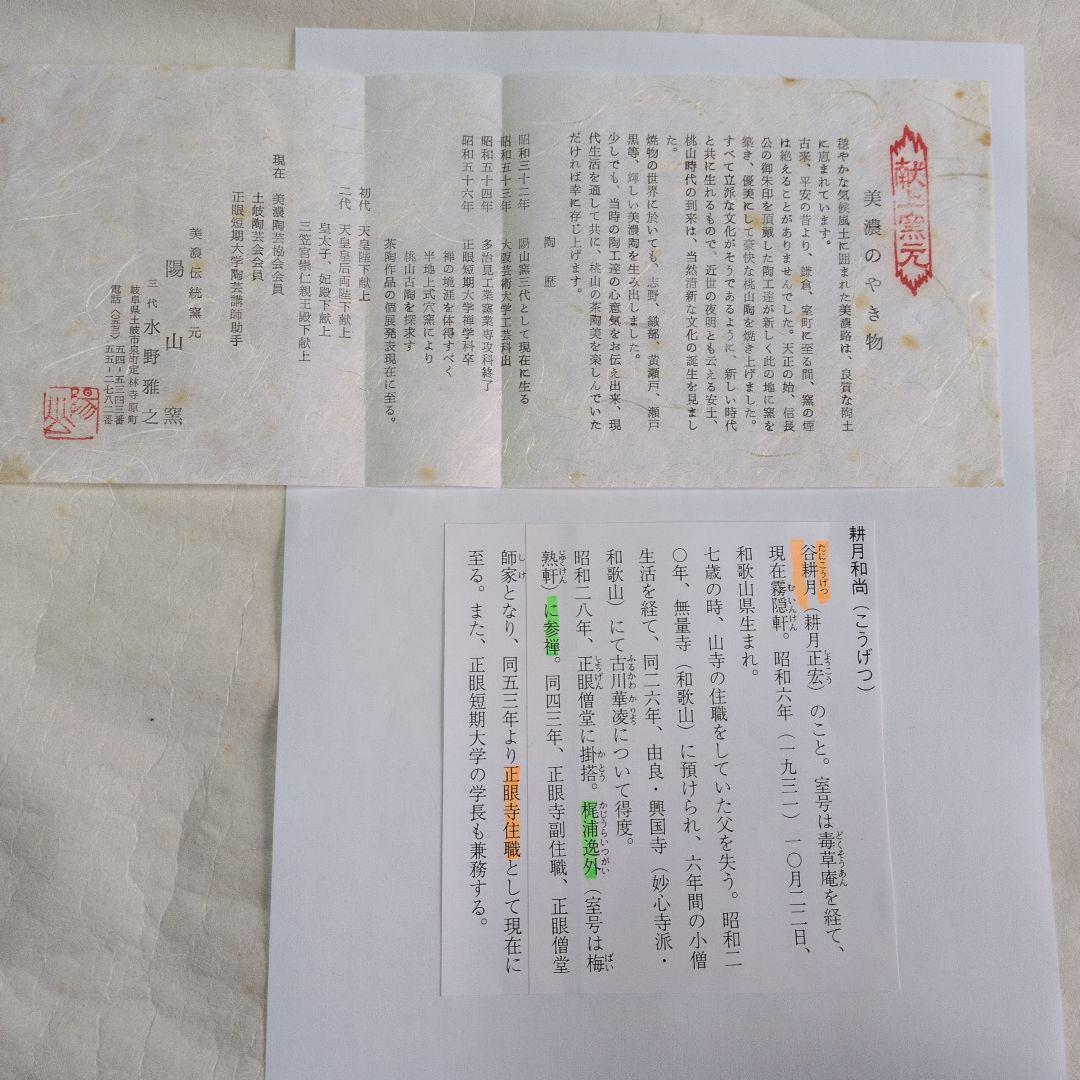 献上窯元
美濃のやき物
穏やかな気候風土に囲まれた美濃路は、良質な陶土
に恵まれています。
古来、平安の昔より、鎌倉、室町に至る間、窯の煙
は絶えることがありませんでした。天正の始、信長
公の御朱印を頂戴した陶工達が新しく此の地に窯を
築き、優美にして豪快な桃山陶を焼き上げました。
すべて立派な文化がそうであるように、新しい時代
と共に生れるもので、近世の夜明とも云える安土、
桃山時代の到来は、当然清新な文化の誕生を見まし
た。
焼物の世界に於いても、志野、織部、黄瀬戸、瀬戸
黒等、輝しい美濃陶を生み出しました。
少しでも、当時の陶工達の心意気をお伝え出来、現
代生活を通して共に、桃山の茶陶美を楽しんでいた
だければ幸に存じ上げます。
陶歴
昭和三十二年 陽山窯三代として現在に生る
昭和五十三年 大阪芸術大学工芸科出
昭和五十四年 多治見工業窯業専攻科終了
昭和五十六年 正眼短期大学禅学科卒
禅の境涯を体得すべく
半地上式穴窯により
桃山古陶を探求す
茶陶作品の個展発表現在に至る。
初代 天皇陛下献上
二代 天皇皇后両陛下献上
皇太子、妃殿下献上
三笠宮崇仁親王殿下献上
現在 美濃陶芸協会会員
土岐陶芸会会員
正眼短期大学陶芸講師助手
美濃伝統窯元
陽山窯
三代 水野雅之
岐阜県土岐市泉町定林寺原町
電話〈〇五七二〉五四-五三四三番
五五-二七八二番
陽山
耕月和尚（こうげつ）
谷耕月（耕月正宏）のこと。室号は毒草庵を経て、
たにこうげつ しょうこう どくそうあん
現在霧隠軒。昭和六年（一九三一）一〇月二二日、
むいんけん
和歌山県生まれ。
七歳の時、山寺の住職をしていた父を失う。昭和二
〇年、無量寺（和歌山）に預けられ、六年間の小僧
生活を経て、同二六年、由良・興国寺（妙心寺派・
和歌山）にて古川華凌について得度。
ふるかわかりょう
昭和二八年、正眼僧堂に掛搭。梶浦逸外（室号は梅
しょうげん かとう かじうらいつがい ばい
熟軒）に参禅。同四三年、正眼寺副住職、正眼僧堂
じゅくけん
師家となり、同五三年より正眼寺住職として現在に
しけ
至る。また、正眼短期大学の学長も兼務する。